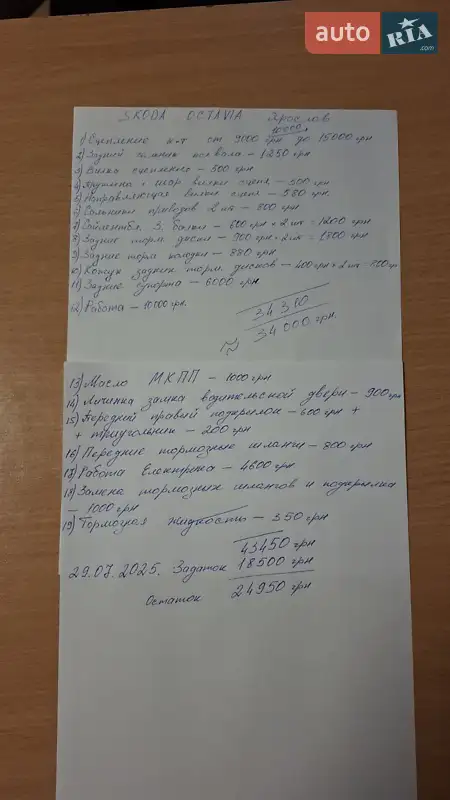 auto
RIA
.com
SKODA OCTAVIA Ярослав
10000
1) Сцепление к-т от 9000 грн до 15000 грн
2) Задний сальник колвала - 1250 грн
3) Вилка сцепление - 500 грн
4) Пружина + шар вилки сцепл. - 500 грн
5) Направляющая вилки сцеп - 580 грн
6) Сальники приводов 2 шт - 800 грн
7) Сайлентбл. З. балки - 600 грн × 2 шт = 1200 грн
8) Задние торм. диски - 900 грн × 2 шт = 1800 грн
9) Задние торм. колодки - 880 грн
10) Кожух задних торм. дисков - 400 грн × 2 шт = 800 грн
11) Задние супорта - 6000 грн
12) Работа - 10000 грн.
34 300
≈ 34 000 грн.
13) Масло МКПП - 1000 грн
14) Личинка замка водительской двери - 900 грн
15) Передний правый подкрылок - 600 грн +
+ триугольник - 200 грн
16) Передние тормозные шланги - 800 грн
17) Работа Електрика - 4600 грн
18) Замена тормозних шлангов и подкрылка
- 1000 грн
19) Тормозная жидкость - 350 грн
43450 грн
29.07.2025. Задаток 18500 грн
Остаток 24950 грн